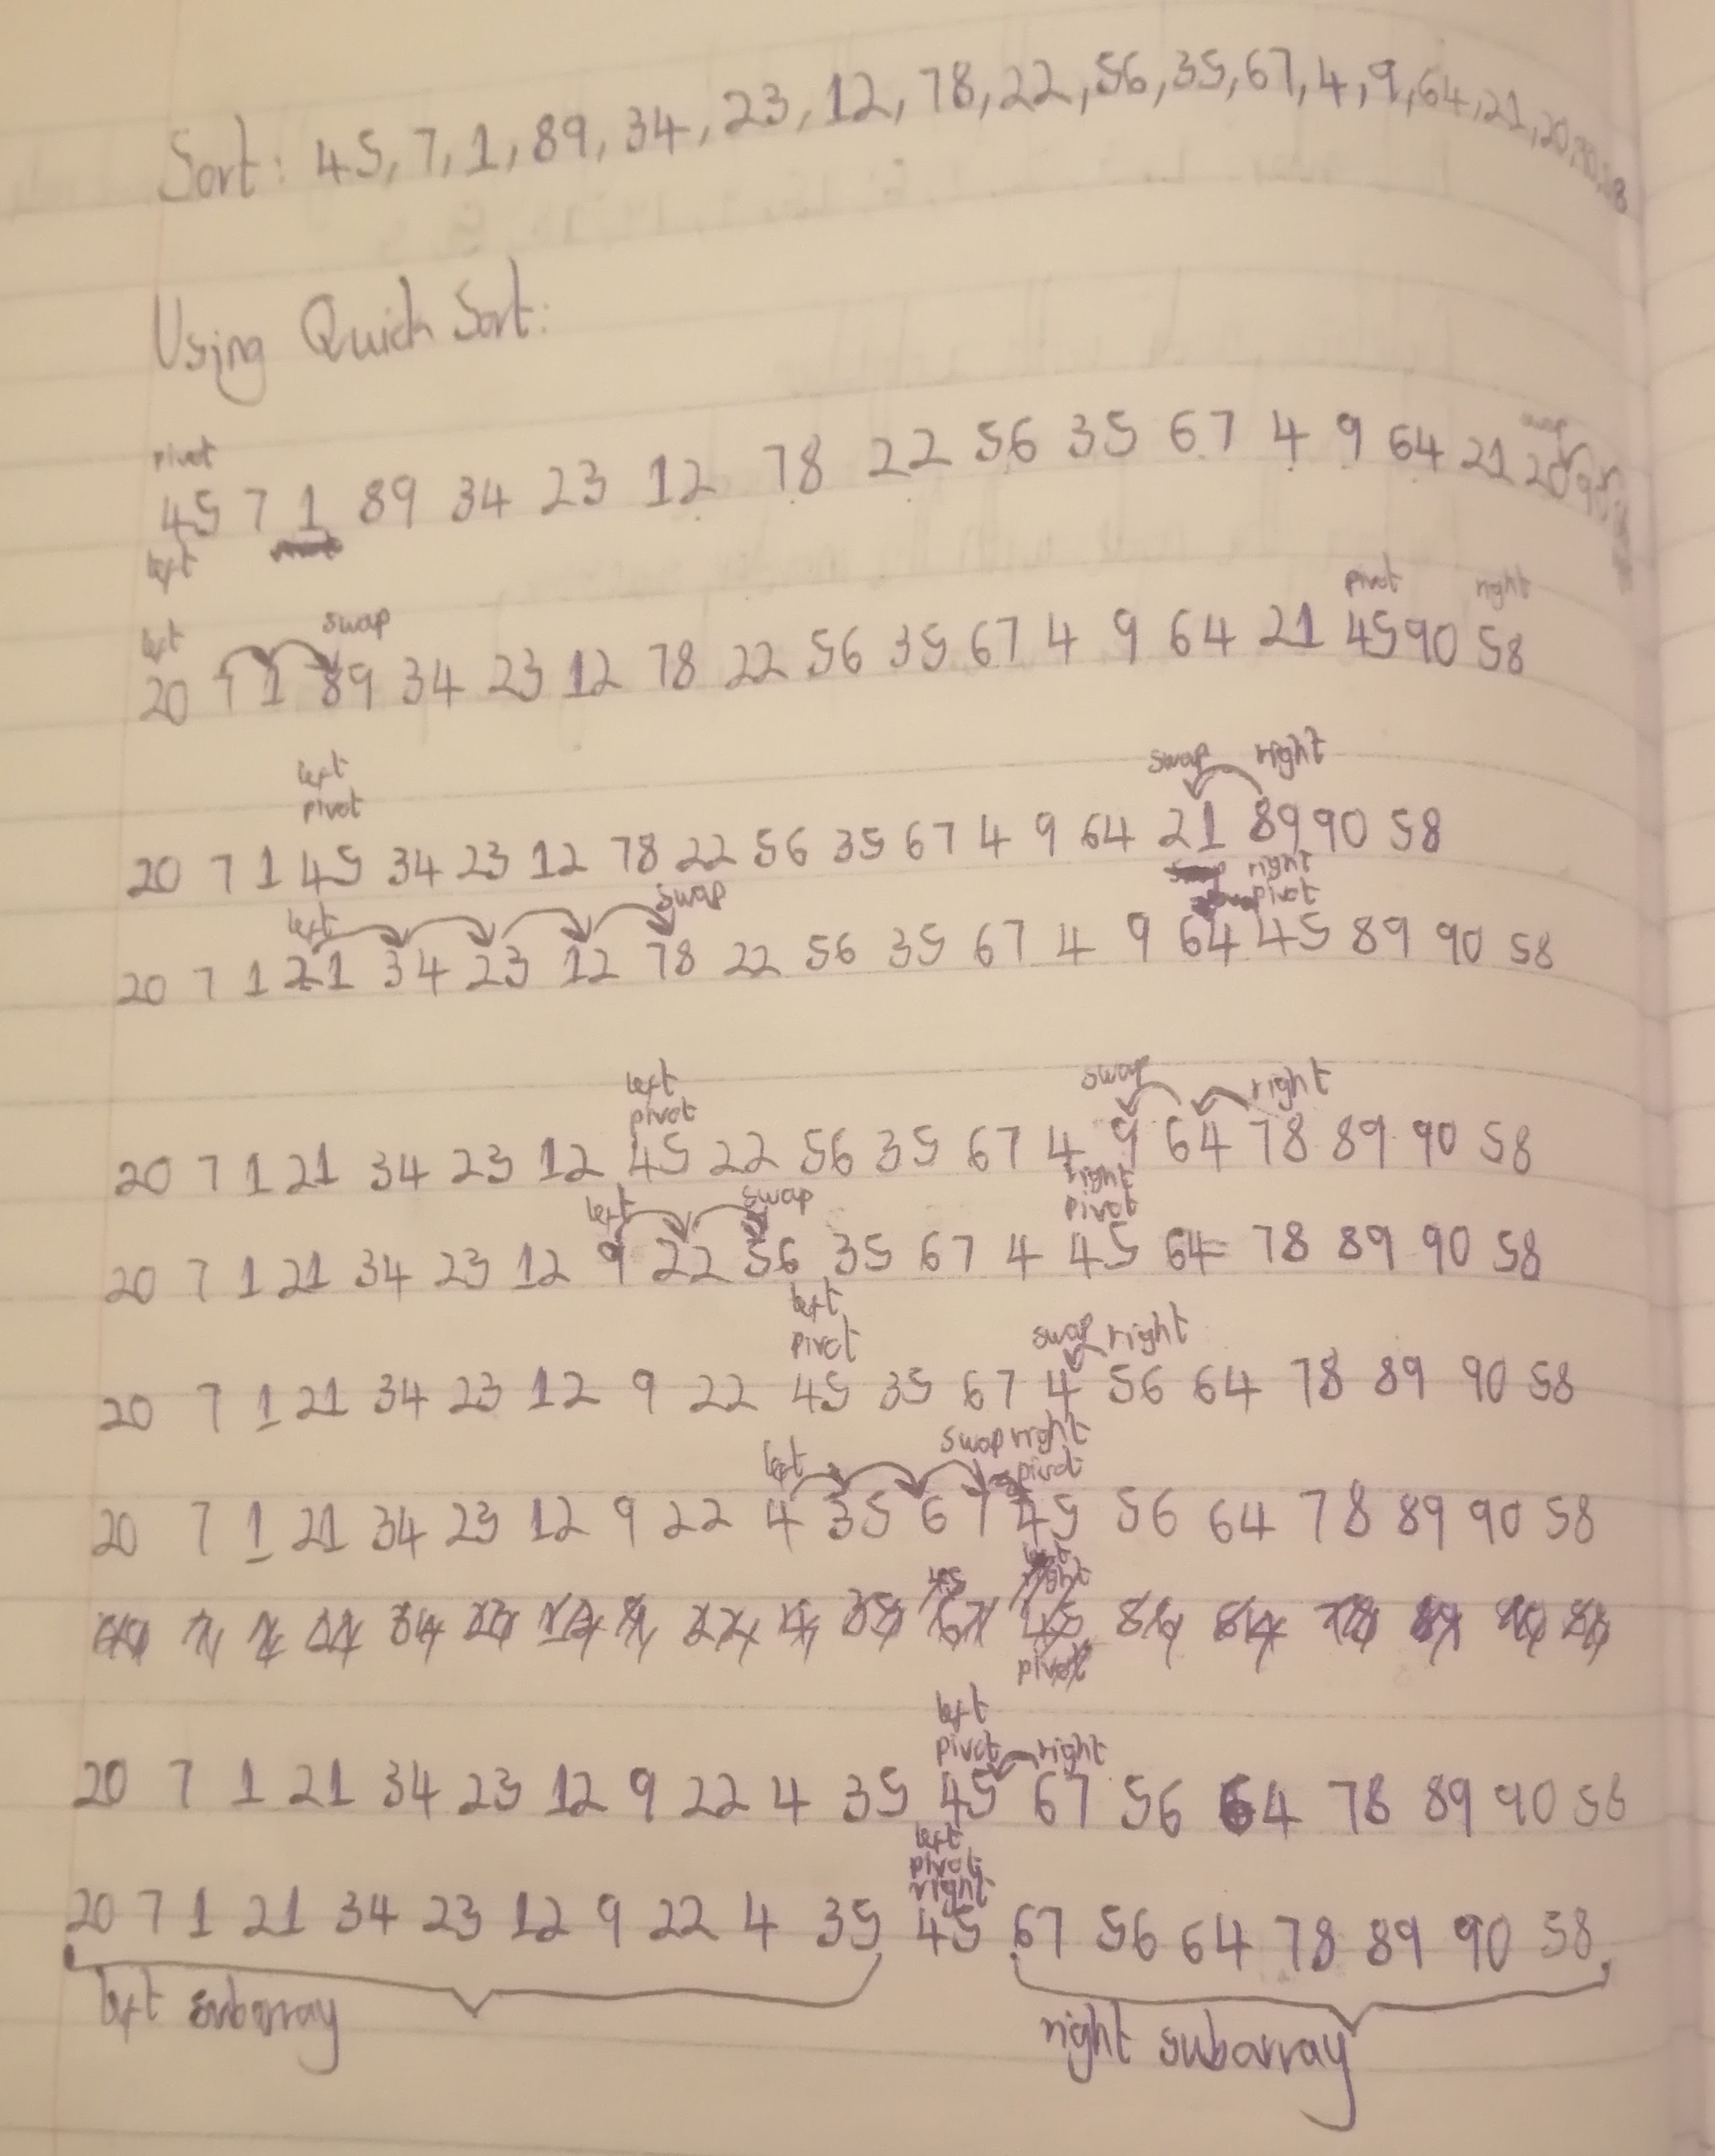 Sort: 45, 7, 1, 89, 34, 23, 12, 78, 22, 56, 35, 67, 4, 9, 64, 21, 20, 90, 58
Using Quick Sort:
pivot swap
45 7 1 89 34 23 12 78 22 56 35 67 4 9 64 21 20 90
left
left swap pivot right
20 7 1 89 34 23 12 78 22 56 35 67 4 9 64 21 45 90 58
left swap right
pivot
20 7 1 45 34 23 12 78 22 56 35 67 4 9 64 21 89 90 58
left swap right
pivot
20 7 1 21 34 23 12 78 22 56 35 67 4 9 64 45 89 90 58
left swap right
pivot
20 7 1 21 34 23 12 45 22 56 35 67 4 9 64 78 89 90 58
left swap right
pivot
20 7 1 21 34 23 12 9 22 56 35 67 4 45 64 78 89 90 58
left
pivot swap right
20 7 1 21 34 23 12 9 22 45 35 67 4 56 64 78 89 90 58
left swap right
pivot
20 7 1 21 34 23 12 9 22 4 35 67 45 56 64 78 89 90 58
right
pivot
left
pivot right
20 7 1 21 34 23 12 9 22 4 35 45 67 56 64 78 89 90 58
left
pivot
right
20 7 1 21 34 23 12 9 22 4 35 45 67 56 64 78 89 90 58
left subarray right subarray